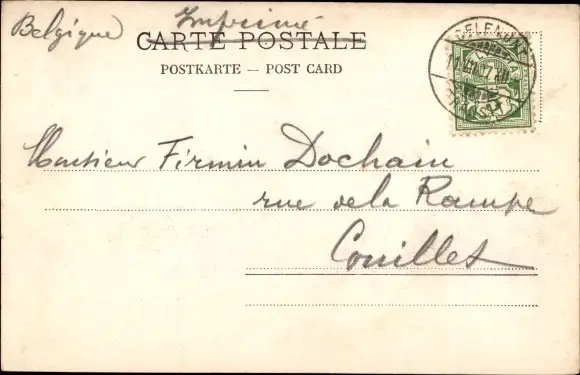 Belgique Imprimé
CARTE POSTALE
POSTKARTE — POST CARD
Monsieur Firmin Dochain
rue de la Rampe
Couillet